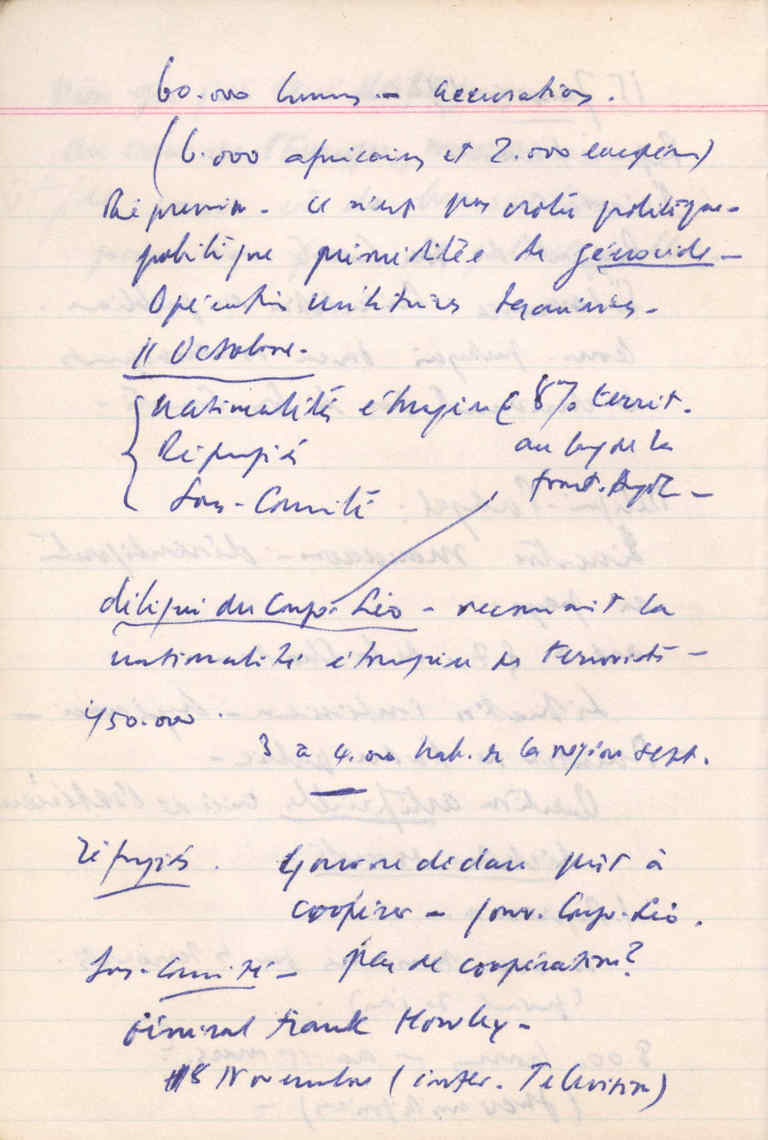 60.000 tonnes — accusations.
(6.000 africains et 2.000 européens)
Répression - Ce n'est pas cette politique -
politique préméditée de génocide -
Opérations militaires terminées -
11 Octobre -
nationalités étrangère 8% territ.
Réfugiés au long de la
Sous-Comité front. Angol -
délégué du Congo-Léo - reconnait la
nationalité étrangère des terroristes -
450.000.
3 à 4.000 hab. de la région sept.
réfugiés. Gouverne déclare prêt à
coopérer - gouv. Congo-Léo.
Sous-Comité - pas de coopération?
Général Frank Howley -
8 Novembre (inter. Télévision)